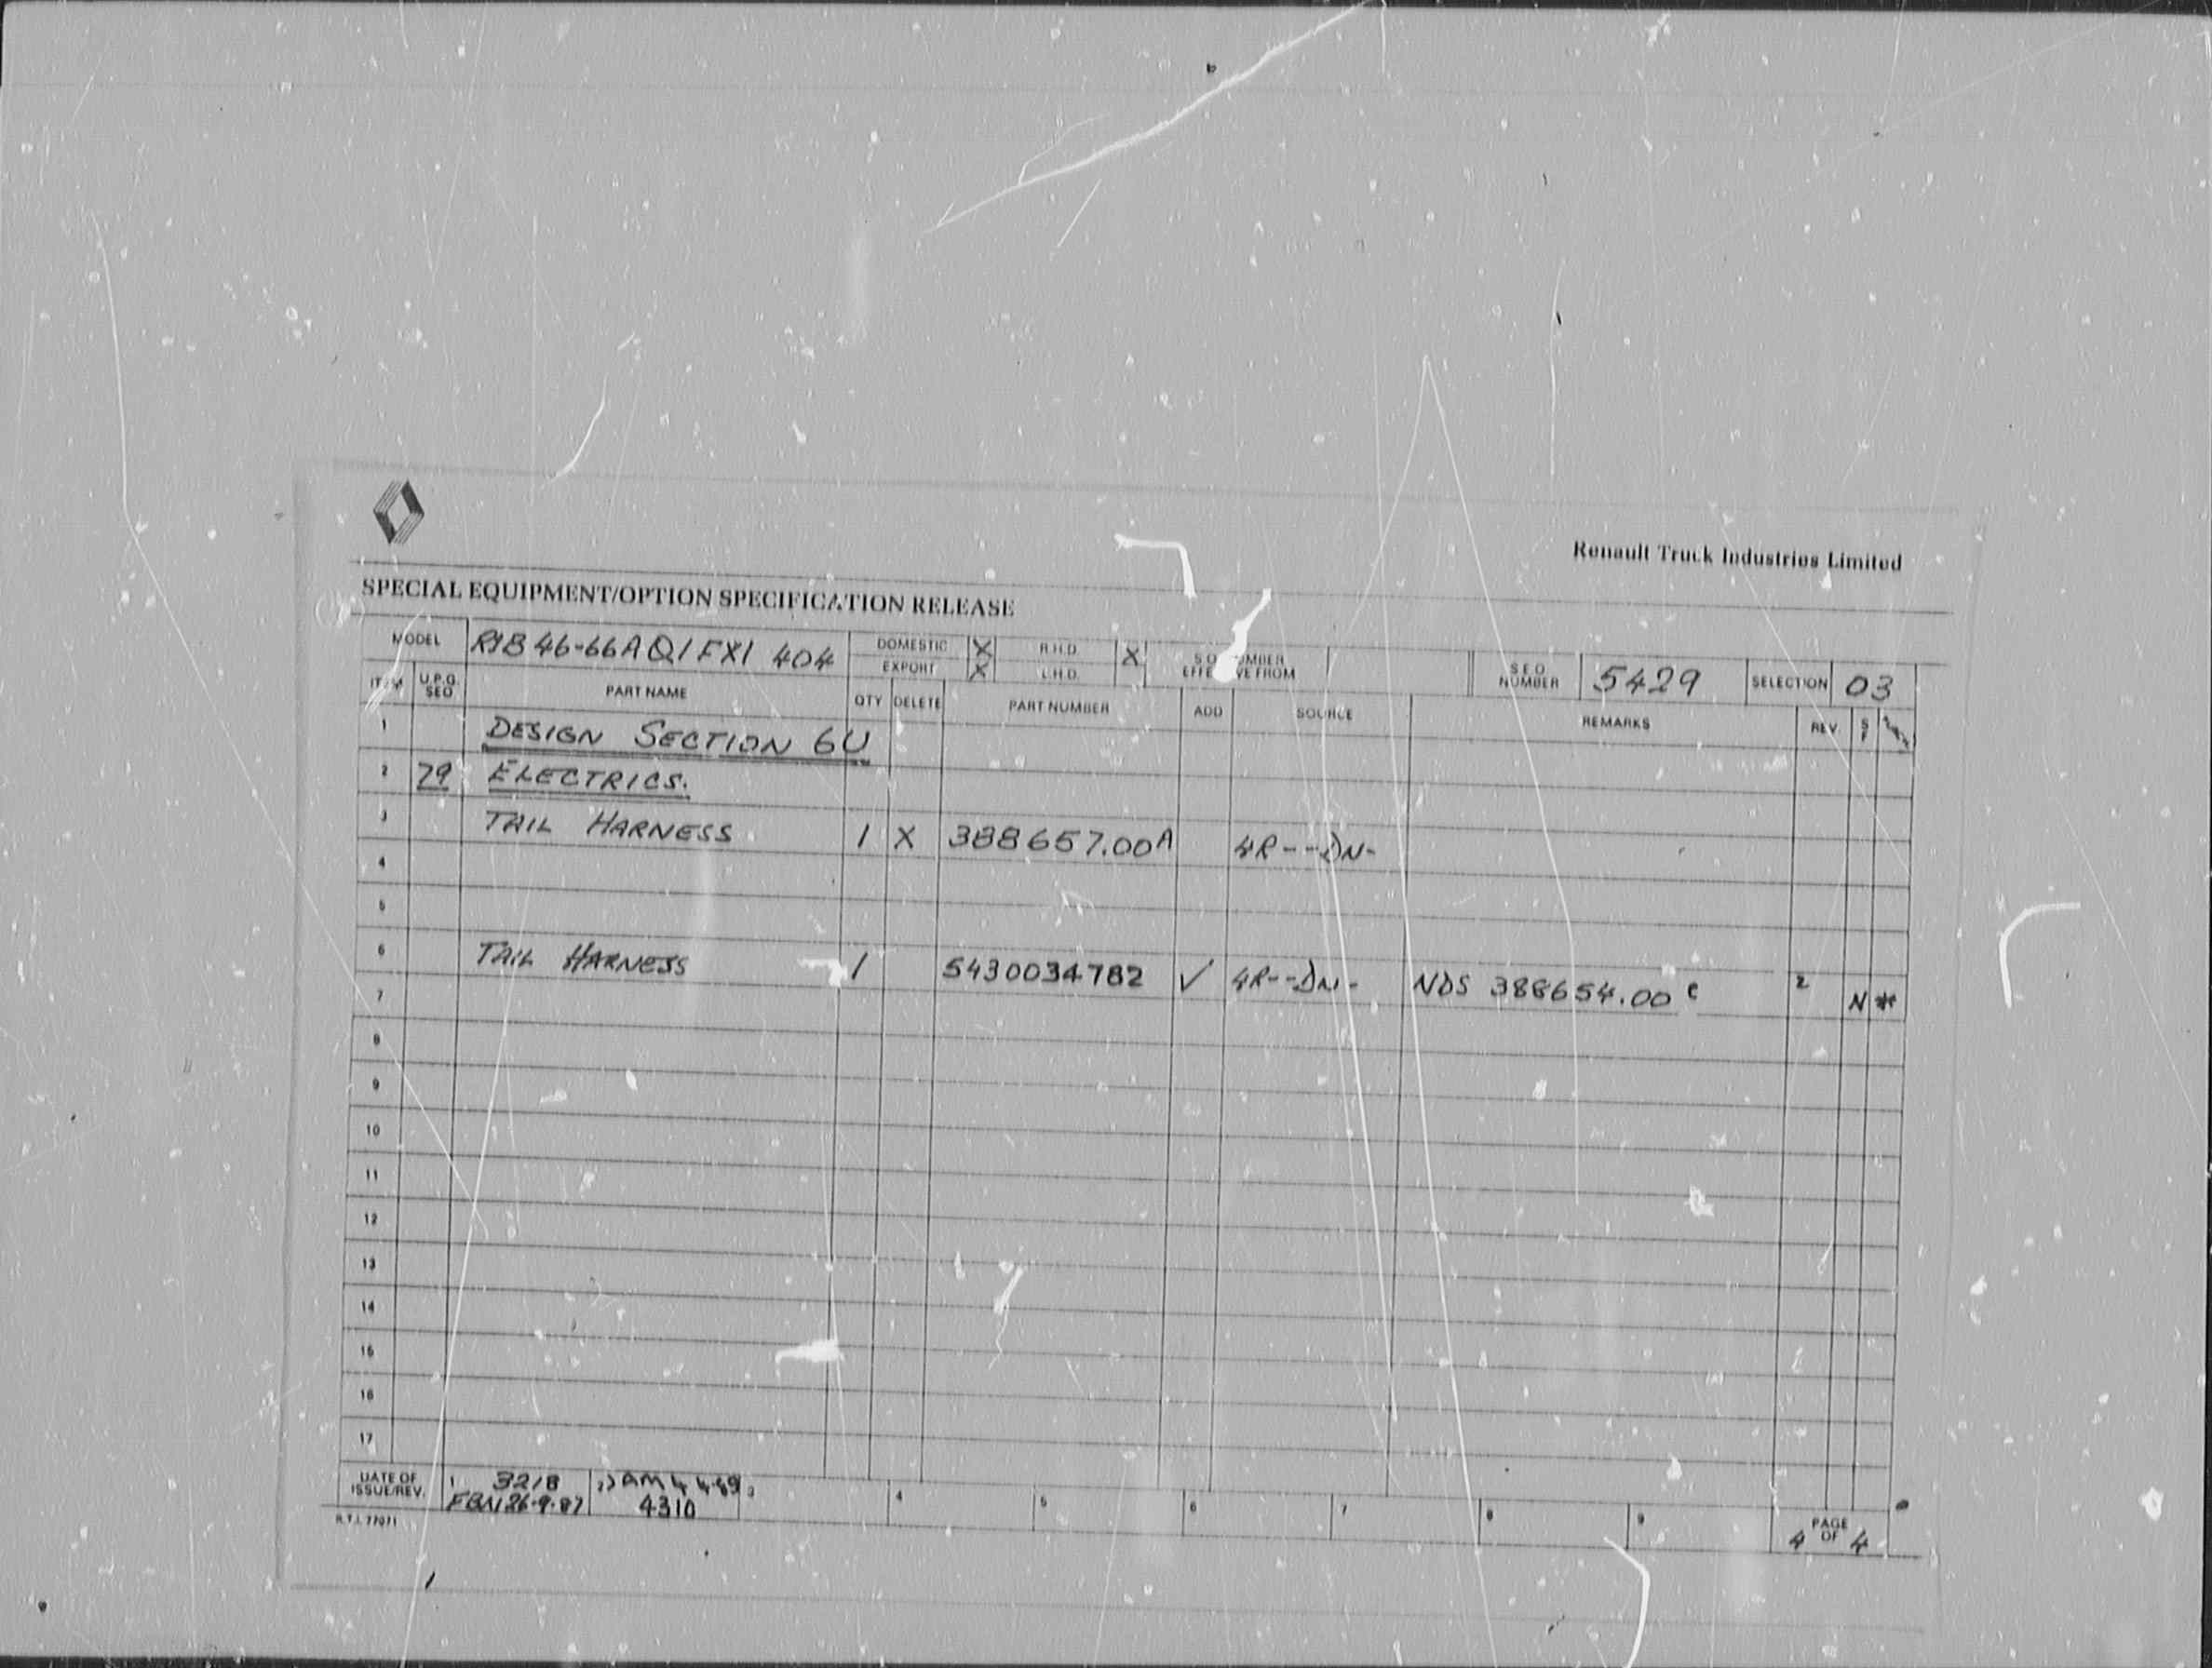 Renault Truck Industries Limited
SPECIAL EQUIPMENT/OPTION SPECIFICATION RELEASE
MODEL R1B 46-66A Q1FX1 404 DOMESTIC X R.H.D. X S.O. NUMBER EFFECTIVE FROM S.E.O. NUMBER 5429 SELECTION 03
EXPORT X L.H.D.
ITEM U.P.G. SEO PART NAME QTY DELETE PART NUMBER ADD SOURCE REMARKS REV
1 DESIGN SECTION 6U
2 79 ELECTRICS.
3 TAIL HARNESS. 1 X 388657.00A 4R---DN-
4
5
6 TAIL HARNESS 1 5430034782 ✓ 4R---DN- NDS 388654.00 C 2 N *
7
8
9
10
11
12
13
14
15
16
17
DATE OF ISSUE/REV. 1 3218 2 AM 4 4.89 3 4 5 6 7 8 9
26.9.87 4310
PAGE 4 OF 4
R.T.I. 77071